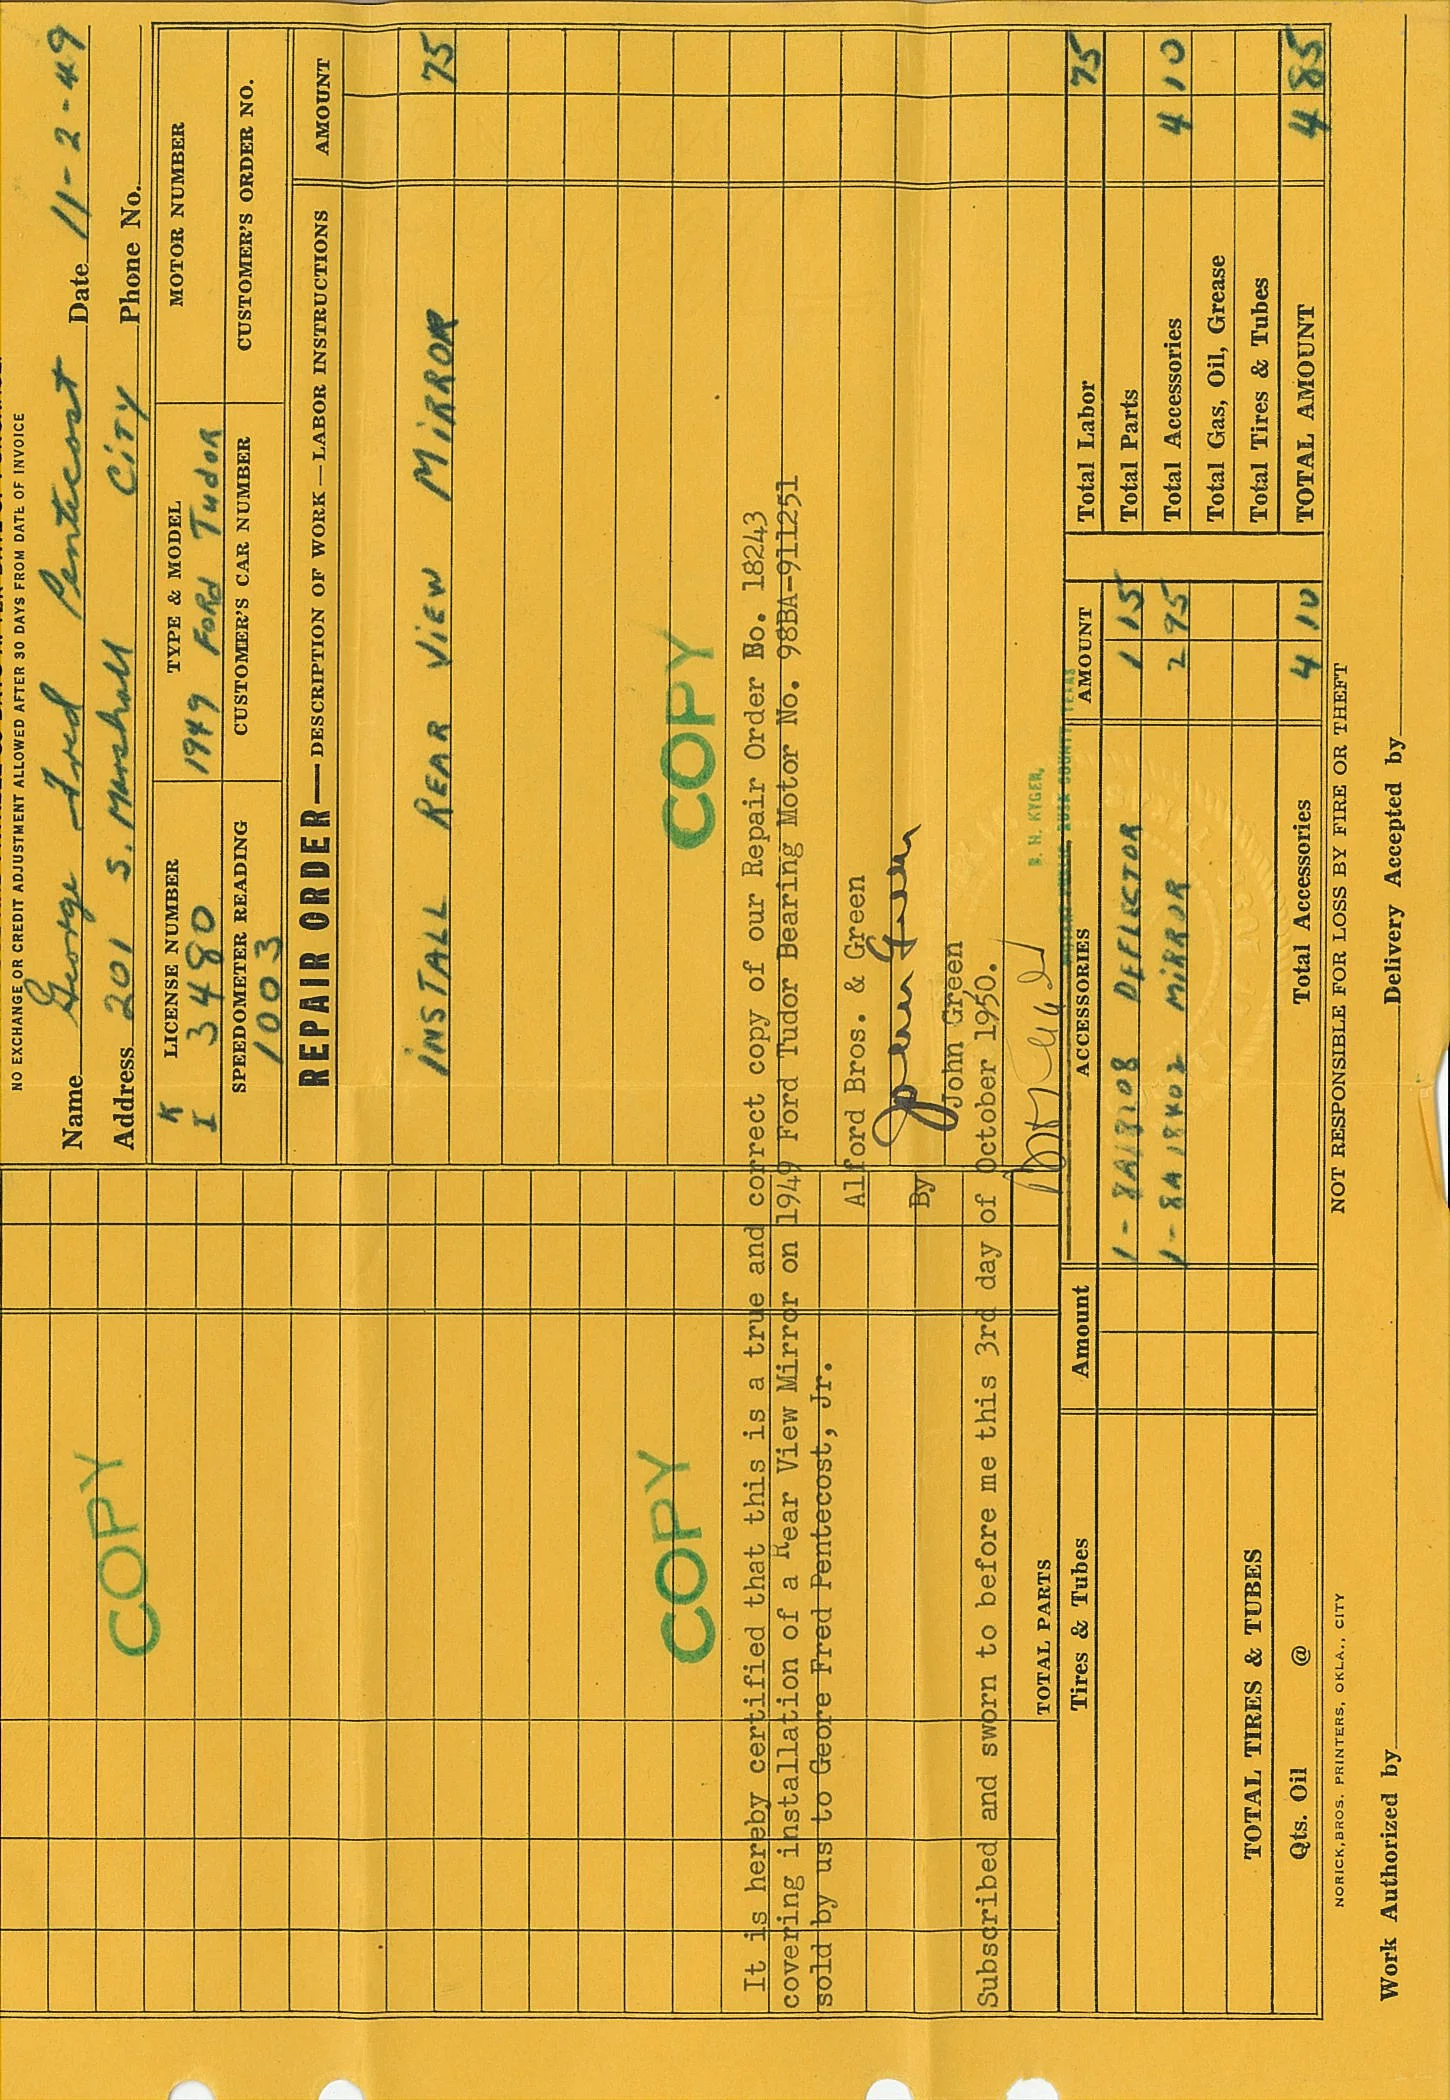 NO EXCHANGE OR CREDIT ADJUSTMENT ALLOWED AFTER 30 DAYS FROM DATE OF INVOICE
Name George Fred Pentecost Date 11-2-49
Address 201 S. Marshall City Phone No.
LICENSE NUMBER TYPE & MODEL MOTOR NUMBER
K
I 3480 1949 FORD TUDOR
SPEEDOMETER READING CUSTOMER'S CAR NUMBER CUSTOMER'S ORDER NO.
1003
REPAIR ORDER — DESCRIPTION OF WORK — LABOR INSTRUCTIONS AMOUNT
INSTALL REAR VIEW MIRROR 75
COPY
COPY
COPY
It is hereby certified that this is a true and correct copy of our Repair Order No. 18243
covering installation of a Rear View Mirror on 1949 Ford Tudor Bearing Motor No. 98BA-911251
sold by us to Geore Fred Pentecost, Jr.
Alford Bros. & Green
By John Green
John Green
Subscribed and sworn to before me this 3rd day of October 1950.
B. N. KYGER,
NOTARY PUBLIC, RUSK COUNTY, TEXAS
TOTAL PARTS
Tires & Tubes Amount ACCESSORIES AMOUNT Total Labor 75
1 - 8A18708 DEFLECTOR 1 15 Total Parts
1 - 8A18402 MIRROR 2 95 Total Accessories 4 10
Total Gas, Oil, Grease
TOTAL TIRES & TUBES Total Tires & Tubes
Qts. Oil @ Total Accessories 4 10 TOTAL AMOUNT 4 85
NORICK BROS. PRINTERS, OKLA., CITY NOT RESPONSIBLE FOR LOSS BY FIRE OR THEFT
Work Authorized by Delivery Accepted by